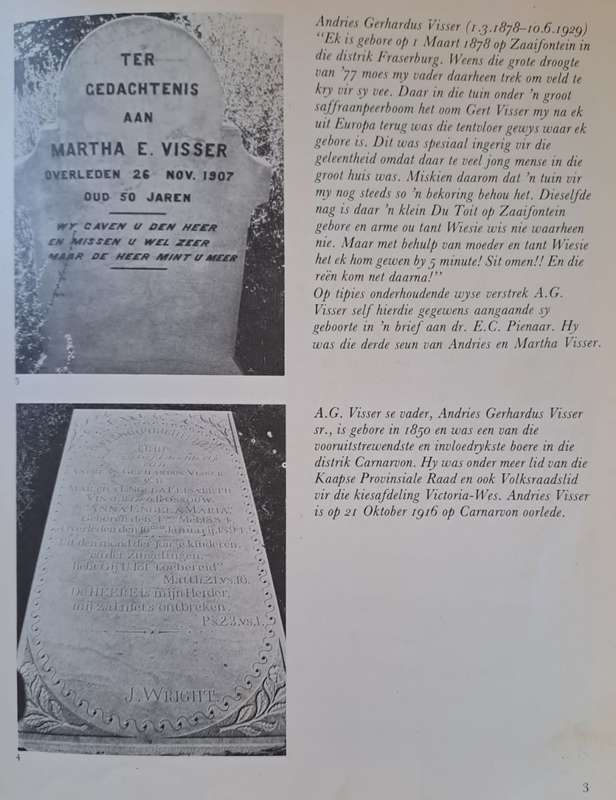 TER
GEDACHTENIS
AAN
MARTHA E. VISSER
OVERLEDEN 26 NOV. 1907
OUD 50 JAREN
WY GAVEN U DEN HEER
EN MISSEN U WEL ZEER
MAAR DE HEER MINT U MEER
3
Andries Gerhardus Visser (1.3.1878–10.6.1929)
"Ek is gebore op 1 Maart 1878 op Zaaifontein in
die distrik Fraserburg. Weens die grote droogte
van '77 moes my vader daarheen trek om veld te
kry vir sy vee. Daar in die tuin onder 'n groot
saffraanpeerboom het oom Gert Visser my na ek
uit Europa terug was die tentvloer gewys waar ek
gebore is. Dit was spesiaal ingerig vir die
geleentheid omdat daar te veel jong mense in die
groot huis was. Miskien daarom dat 'n tuin vir
my nog steeds so 'n bekoring behou het. Dieselfde
nag is daar 'n klein Du Toit op Zaaifontein
gebore en arme ou tant Wiesie wis nie waarheen
nie. Maar met behulp van moeder en tant Wiesie
het ek hom gewen by 5 minute! Sit omen!! En die
reën kom net daarna!"
Op tipies onderhoudende wyse verstrek A.G.
Visser self hierdie gegewens aangaande sy
geboorte in 'n brief aan dr. E.C. Pienaar. Hy
was die derde seun van Andries en Martha Visser.
VAN
GERHARDUS VISSER
EN
MARTHA ENGELA ELISABETH
VISSER
ANNA ENGELA MARIA
Geboren den
Overleden den Januarij, 1894
Uit den mond der jonge kinderen,
en der zuigelingen,
hebt Gij U lof toebereid
Matth. 21. vs. 16.
De HEERE is mijn Herder,
mij zal niets ontbreken.
Ps. 23. vs. 1.
J. WRIGHT.
4
A.G. Visser se vader, Andries Gerhardus Visser
sr., is gebore in 1850 en was een van die
vooruitstrewendste en invloedrykste boere in die
distrik Carnarvon. Hy was onder meer lid van die
Kaapse Provinsiale Raad en ook Volksraadslid
vir die kiesafdeling Victoria-Wes. Andries Visser
is op 21 Oktober 1916 op Carnarvon oorlede.
3